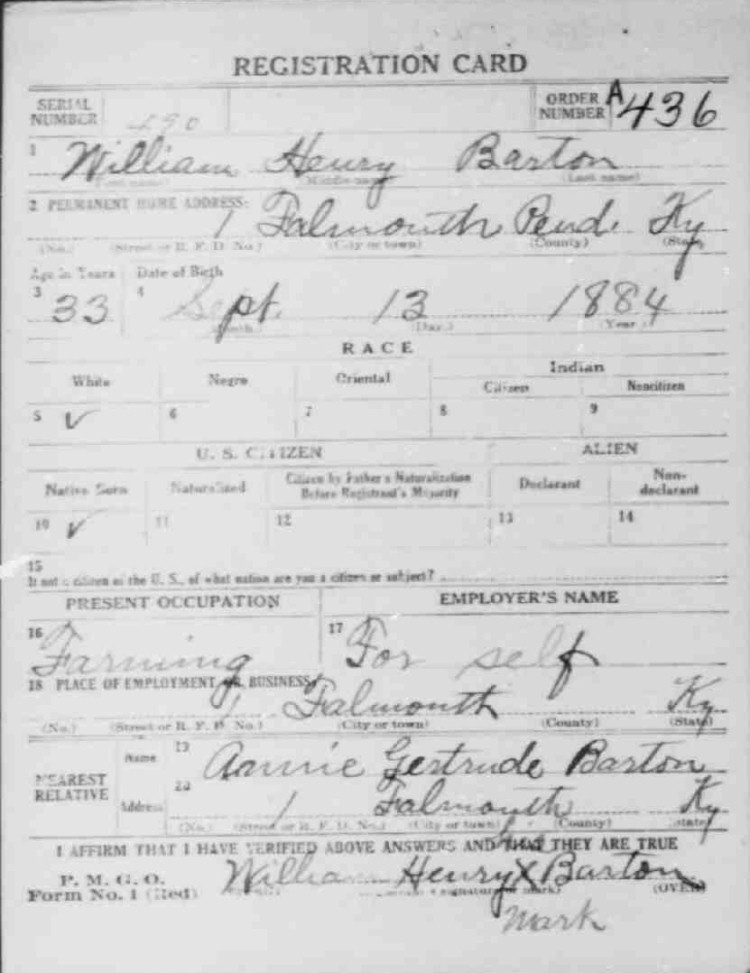 REGISTRATION CARD
SERIAL NUMBER 490 ORDER NUMBER A436
1 William Henry Barton
(First name) (Middle name) (Last name)
2 PERMANENT HOME ADDRESS:
1 Falmouth Pend. Ky
(No.) (Street or R. F. D. No.) (City or town) (County) (State)
Age in Years Date of Birth
3 33 4 Sept. 13 1884
(Month) (Day.) (Year.)
RACE
White Negro Oriental Indian
Citizen Noncitizen
5 ✓ 6 7 8 9
U. S. CITIZEN ALIEN
Native Born Naturalized Citizen by Father's Naturalization Before Registrant's Majority Declarant Non-declarant
10 ✓ 11 12 13 14
15
If not a citizen of the U. S., of what nation are you a citizen or subject?
PRESENT OCCUPATION EMPLOYER'S NAME
16 Farming 17 For self
18 PLACE OF EMPLOYMENT OR BUSINESS:
1 Falmouth Ky
(No.) (Street or R. F. D. No.) (City or town) (County) (State)
NEAREST RELATIVE
Name 19 Annie Gertrude Barton
Address 20 1 Falmouth Ky
(No.) (Street or R. F. D. No.) (City or town) (County) (State)
I AFFIRM THAT I HAVE VERIFIED ABOVE ANSWERS AND THAT THEY ARE TRUE
P. M. G. O.
Form No. 1 (Red)
his
William Henry X Barton
(signature or mark) (OVER)
mark